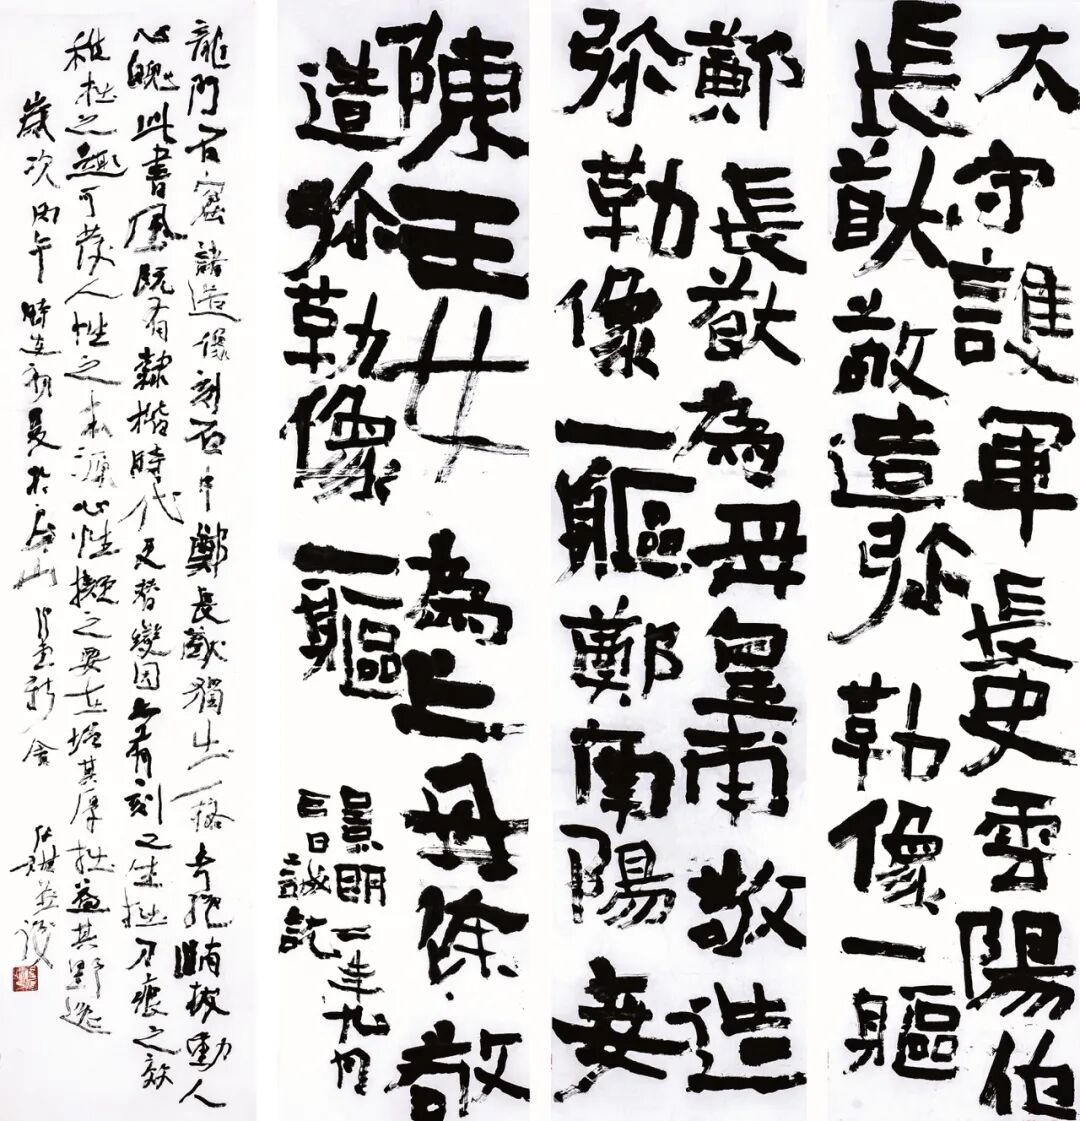 太守護軍長史雲陽伯
長猷敬造弥勒像一軀
鄭長猷為母皇甫敬造
弥勒像一軀鄭南陽妾
陳王女為亡母徐敬
造弥勒像一軀
景明二年九月
三日誠訖
龍門石窟諸造像刻石中鄭長猷獨出一格奇絕峭拔動人
心魄此書風既有隸楷時代更替變因亦有刻之生拙刀痕之效
稚拙之趣可發人性之本源心性擬之要在增其厚拙益其野逸
歲次丙午時近初夏於山新舍並識